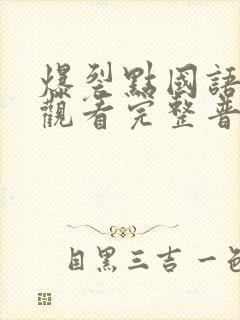 爆裂點國語
觀看完整普
目黑三吉一色